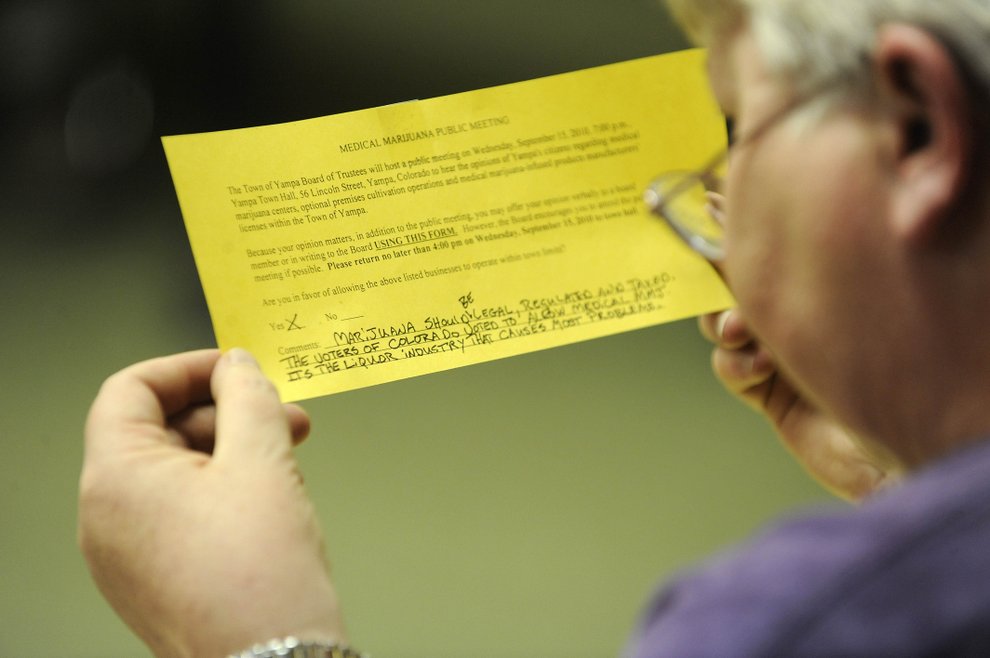 MEDICAL MARIJUANA PUBLIC MEETING
The Town of Yampa Board of Trustees will host a public meeting on Wednesday, September 15, 2010, 7:00 p.m.,
Yampa Town Hall, 56 Lincoln Street, Yampa, Colorado to hear the opinions of Yampa's citizens regarding medical
marijuana centers, optional premises cultivation operations and medical marijuana-infused products manufacturers
licenses within the Town of Yampa.
Because your opinion matters, in addition to the public meeting, you may offer your opinion verbally to a board
member or in writing to the Board USING THIS FORM. However, the Board encourages you to attend the
meeting if possible. Please return no later than 4:00 pm on Wednesday, September 15, 2010 to town hall.
Are you in favor of allowing the above listed businesses to operate within town limits?
Yes X No __
Comments: MARIJUANA SHOULD BE LEGAL, REGULATED AND TAXED.
THE VOTERS OF COLORADO VOTED TO ALLOW MEDICAL MMJ
ITS THE LIQUOR INDUSTRY THAT CAUSES MOST PROBLEMS.